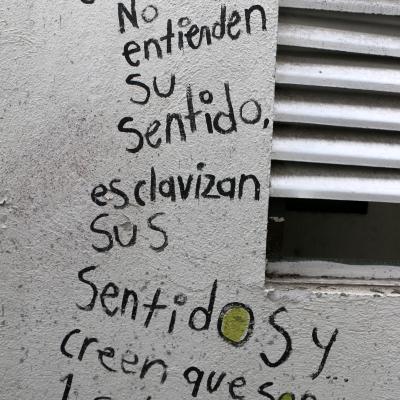 No
entienden
su
sentido,
esclavizan
sus
sentidos y
creen que son